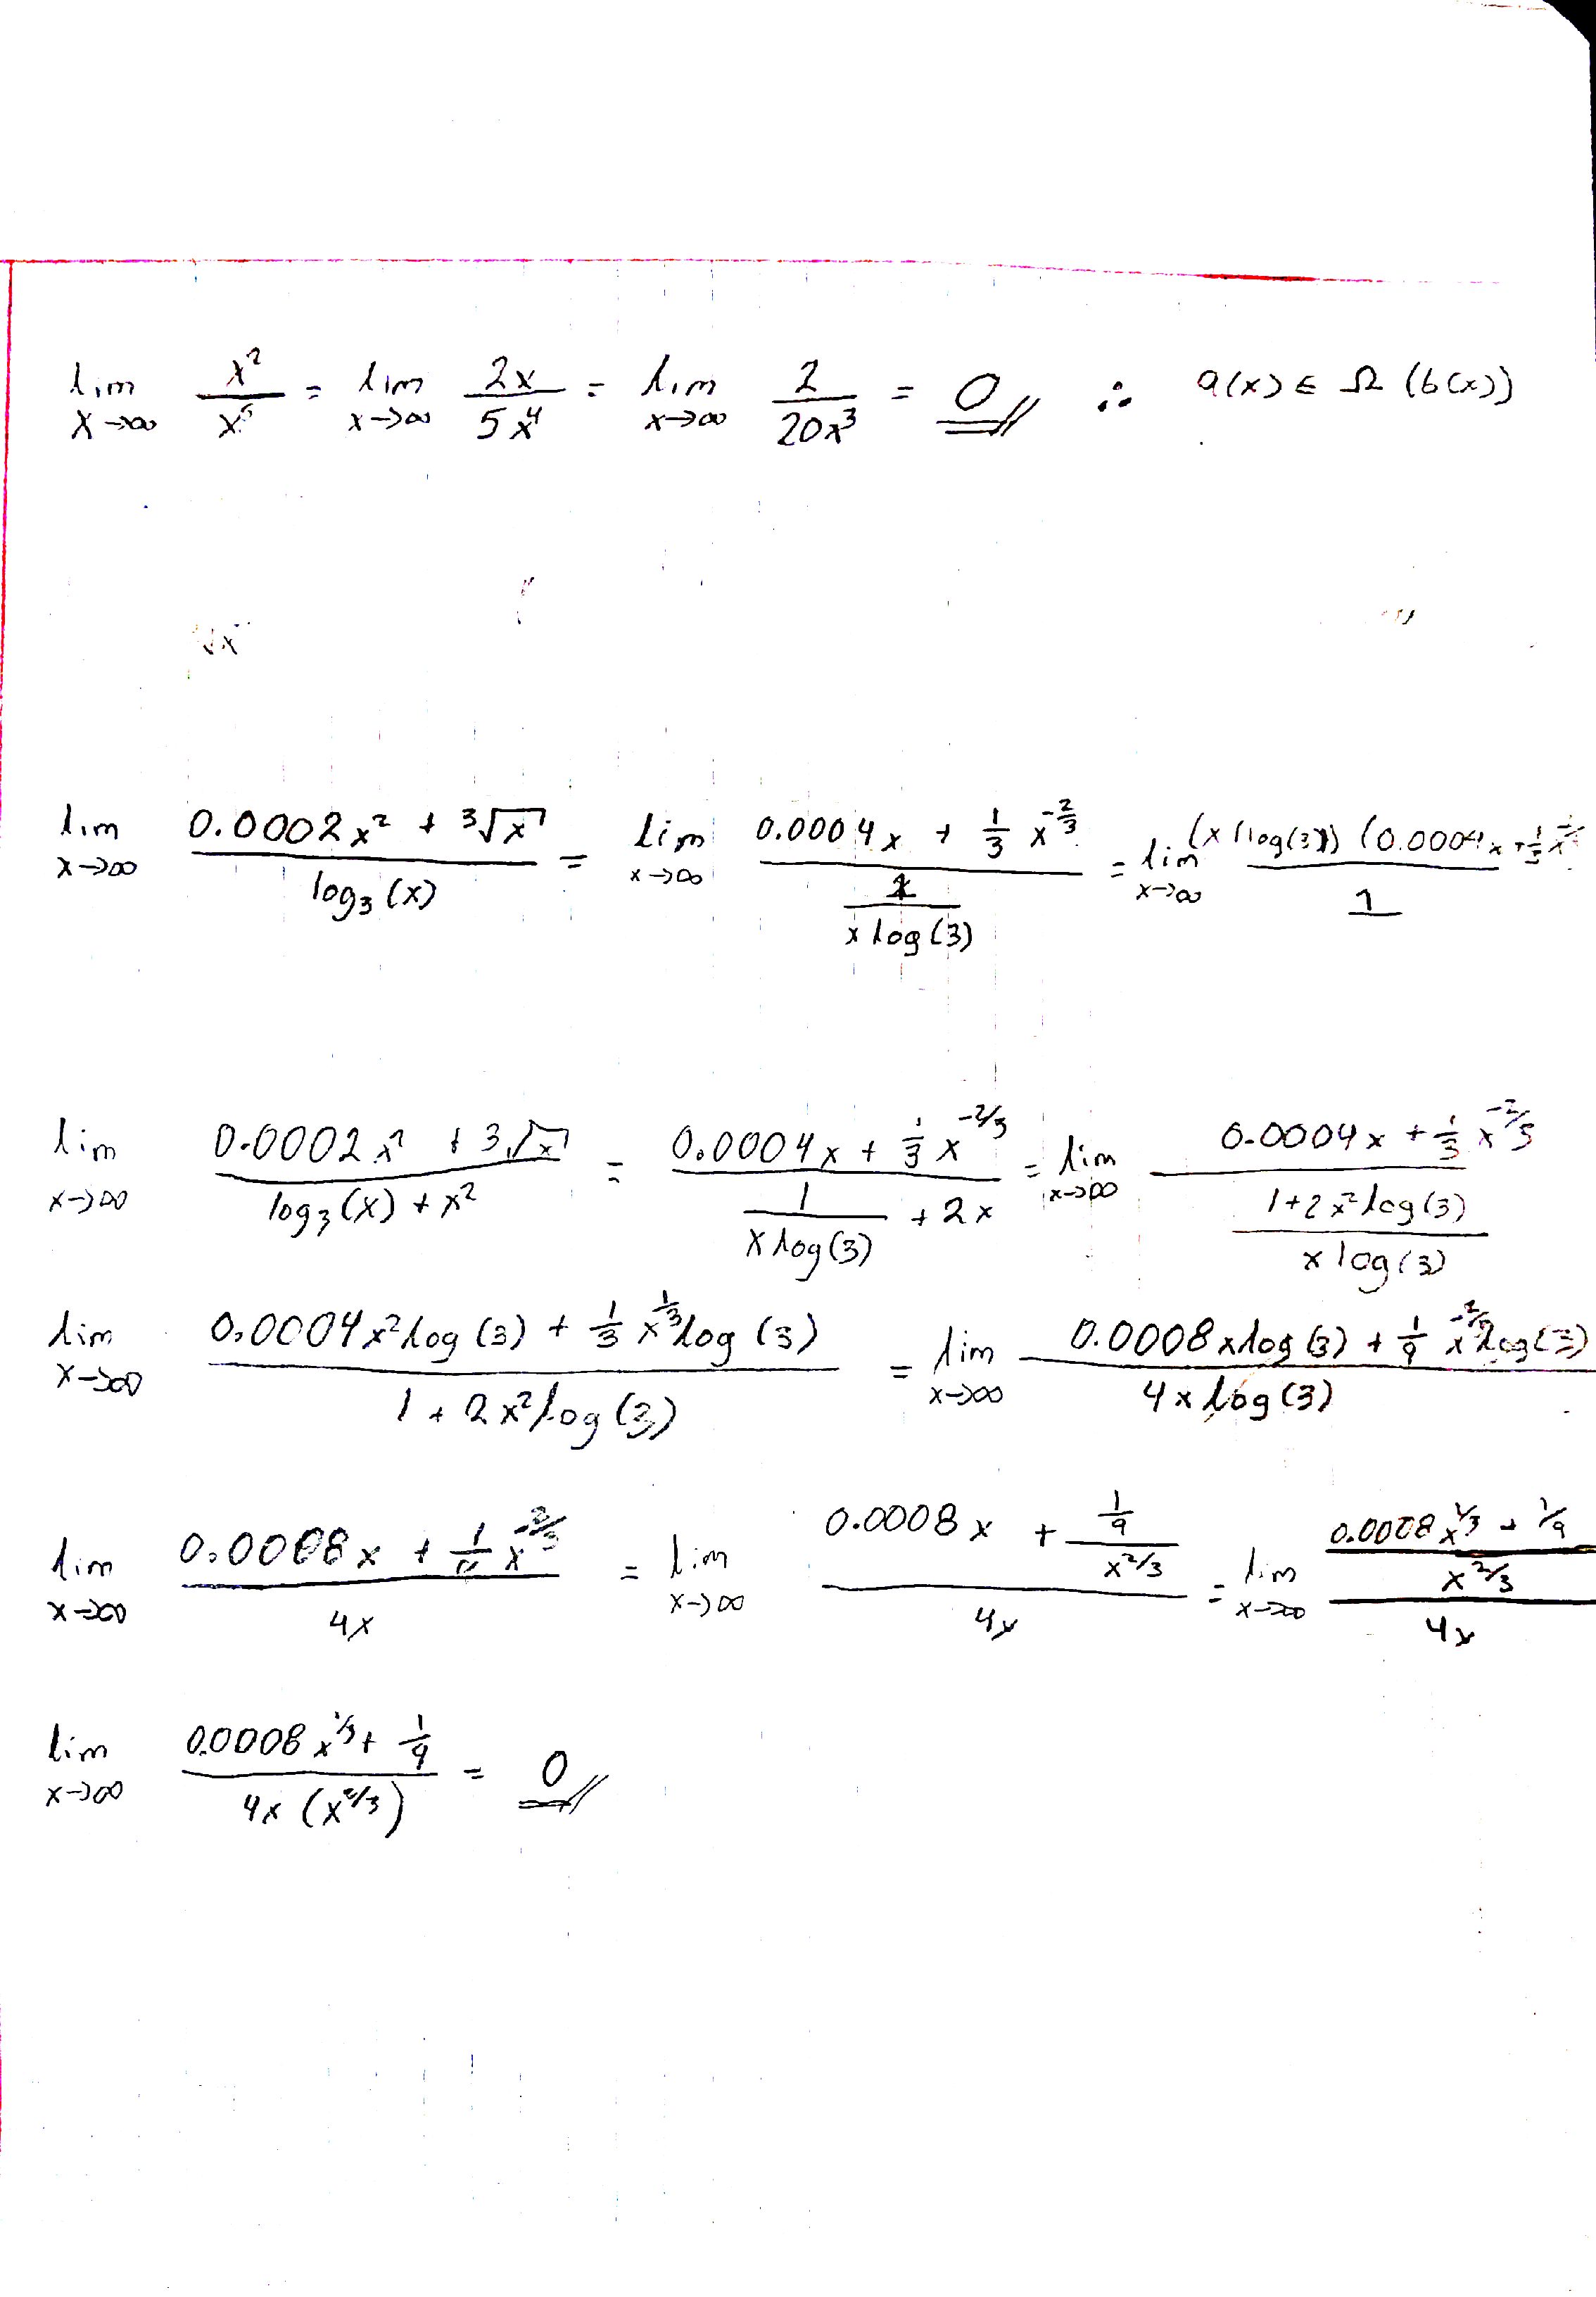 lim x→∞ x²/x⁵ = lim x→∞ 2x/5x⁴ = lim x→∞ 2/20x³ = 0 ∴ a(x) ∈ Ω (b(x))
√x
lim x→∞ (0.0002x² + ³√x)/(log₃(x)) = lim x→∞ (0.0004x + 1/3 x^(-2/3))/(1/(x log(3))) = lim x→∞ (x(log(3)) (0.0004x + 1/3 x^(-2/3))/1
lim x→∞ (0.0002x² + 3√x)/(log₃(x) + x²) = (0.0004x + 1/3 x^(-2/3))/(1/(x log(3)) + 2x) = lim x→∞ (0.0004x + 1/3 x^(-2/3))/((1+2x² log(3))/(x log(3)))
lim x→∞ (0.0004x² log(3) + 1/3 x^(1/3) log(3))/(1 + 2x² log(3)) = lim x→∞ (0.0008x log(3) + 1/9 x^(-2/3) log(3))/(4x log(3))
lim x→∞ (0.0008x + 1/9 x^(-2/3))/(4x) = lim x→∞ (0.0008x + (1/9)/(x^(2/3)))/(4x) = lim x→∞ ((0.0008x^(1/3) + 1/9)/(x^(2/3)))/(4x)
lim x→∞ (0.0008x^(1/3) + 1/9)/(4x (x^(2/3))) = 0